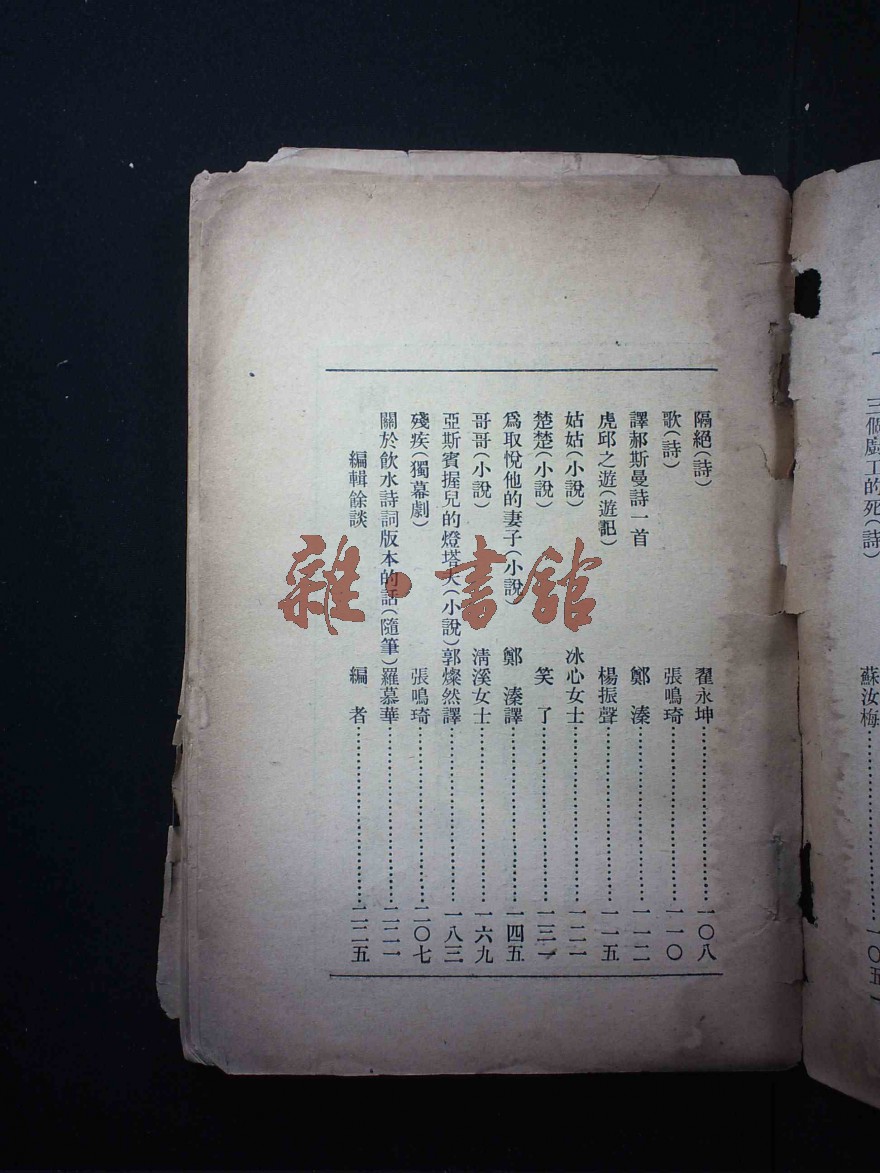 三個廢工的死(詩) 蘇汝梅 一〇五
隔絕(詩) 翟永坤 一〇八
歌(詩) 張鳴琦 一一〇
譯郝斯曼詩一首 鄭溱 一一二
虎邱之遊(遊記) 楊振聲 一一五
姑姑(小說) 冰心女士 一二一
楚楚(小說) 笑了 一三一
爲取悅他的妻子(小說) 鄭溱譯 一四五
哥哥(小說) 清溪女士 一六九
亞斯賓握兒的燈塔夫(小說) 郭燦然譯 一八三
殘疾(獨幕劇) 張鳴琦 二〇七
關於飲水詩詞版本的話(隨筆) 羅慕華 二二一
編輯餘談 編者 二二五
雜·書館